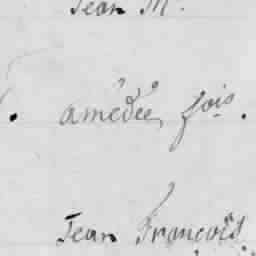 Jean M.
amédée, fois.
Jean François